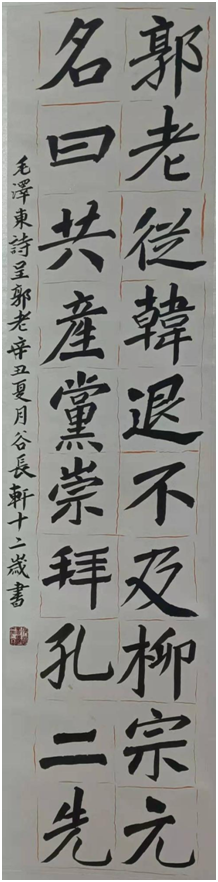 郭老從韓退不及柳宗元
名曰共產黨崇拜孔二先
毛澤東詩呈郭老辛丑夏月谷長軒十二歲書